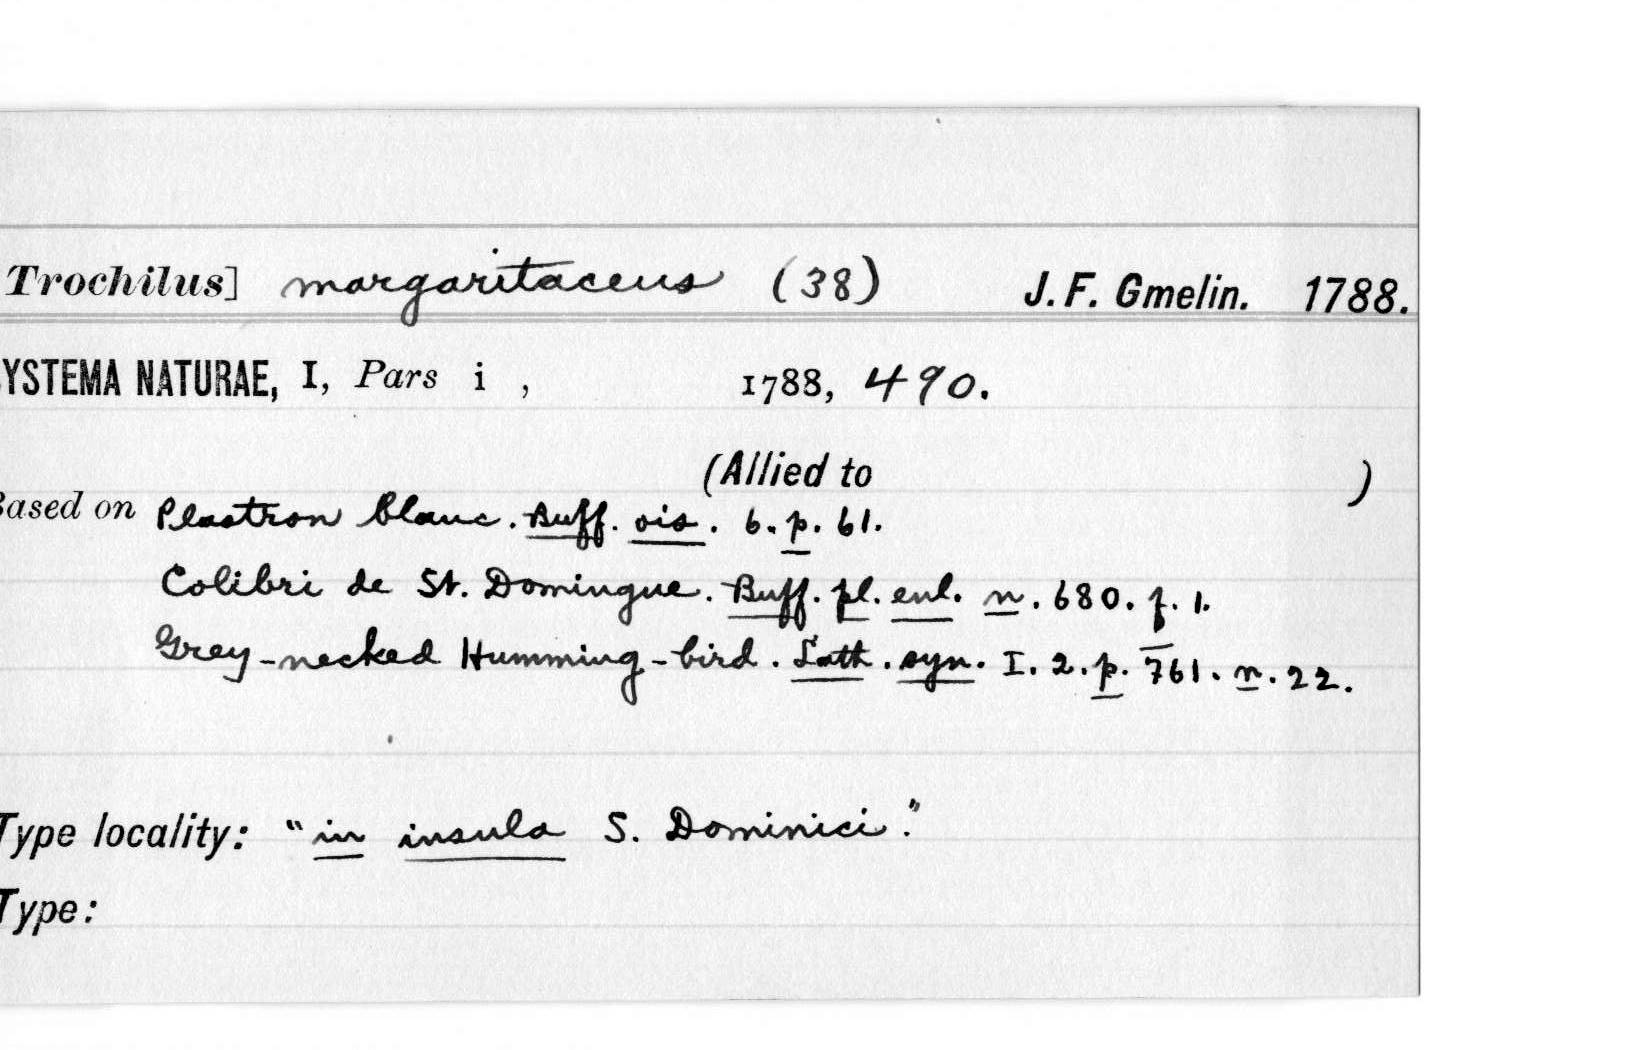 Trochilus] margaritaceus (38) J. F. Gmelin. 1788.
YSTEMA NATURAE, I, Pars i , 1788, 490.
(Allied to )
Based on Plastron blanc. Buff. ois. 6. p. 61.
Colibri de St. Domingue. Buff. pl. enl. n. 680. f. 1.
Grey-necked Humming-bird. Lath. syn. I. 2. p. 761. n. 22.
Type locality: "in insula S. Dominici."
Type: